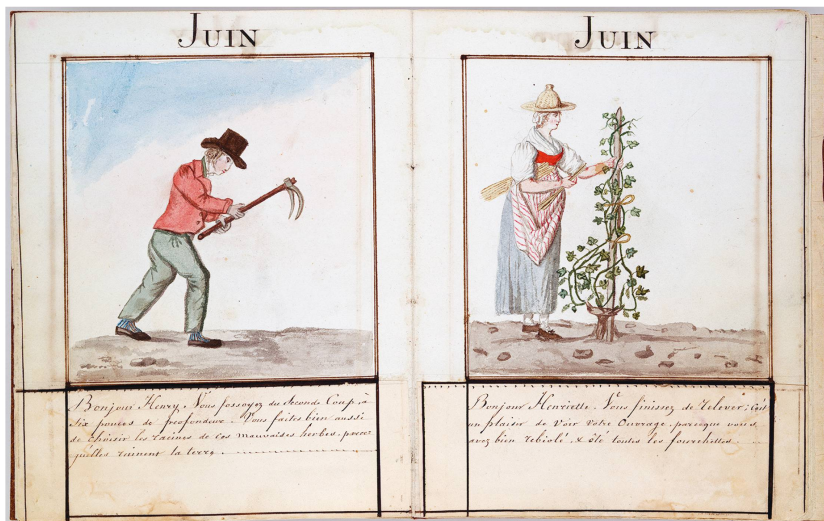 JUIN
Bonjour Henry, Vous fossoyez du Seconde Coup à
six pouces de profondeur. Vous faites bien aussi
de choisir les racines de ces mauvaises herbes, parce
qu'elles ruinent la terre.
JUIN
Bonjour Henriette. Vous finissez de relever; C'est
un plaisir de Voir Votre Ouvrage, parceque vous
avez bien rebiolé, & ôté toutes les fourchettes.